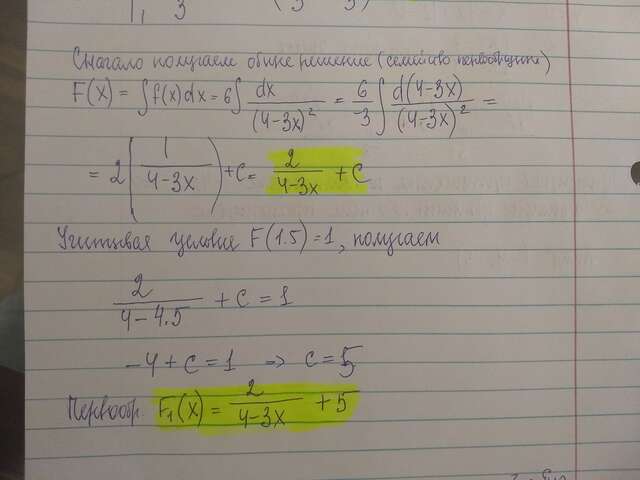 Сначало получаем общие решение (семейство первообразных)
F(x) = ∫f(x)dx = 6∫ dx/(4-3x)² = 6/-3 ∫ d(4-3x)/(4-3x)² =
= 2(1/(4-3x)) + C = 2/(4-3x) + C
Учитывая условие F(1.5)=1, получаем
2/(4-4.5) + C = 1
-4 + C = 1 → C = 5
Первообр. F₁(x) = 2/(4-3x) + 5